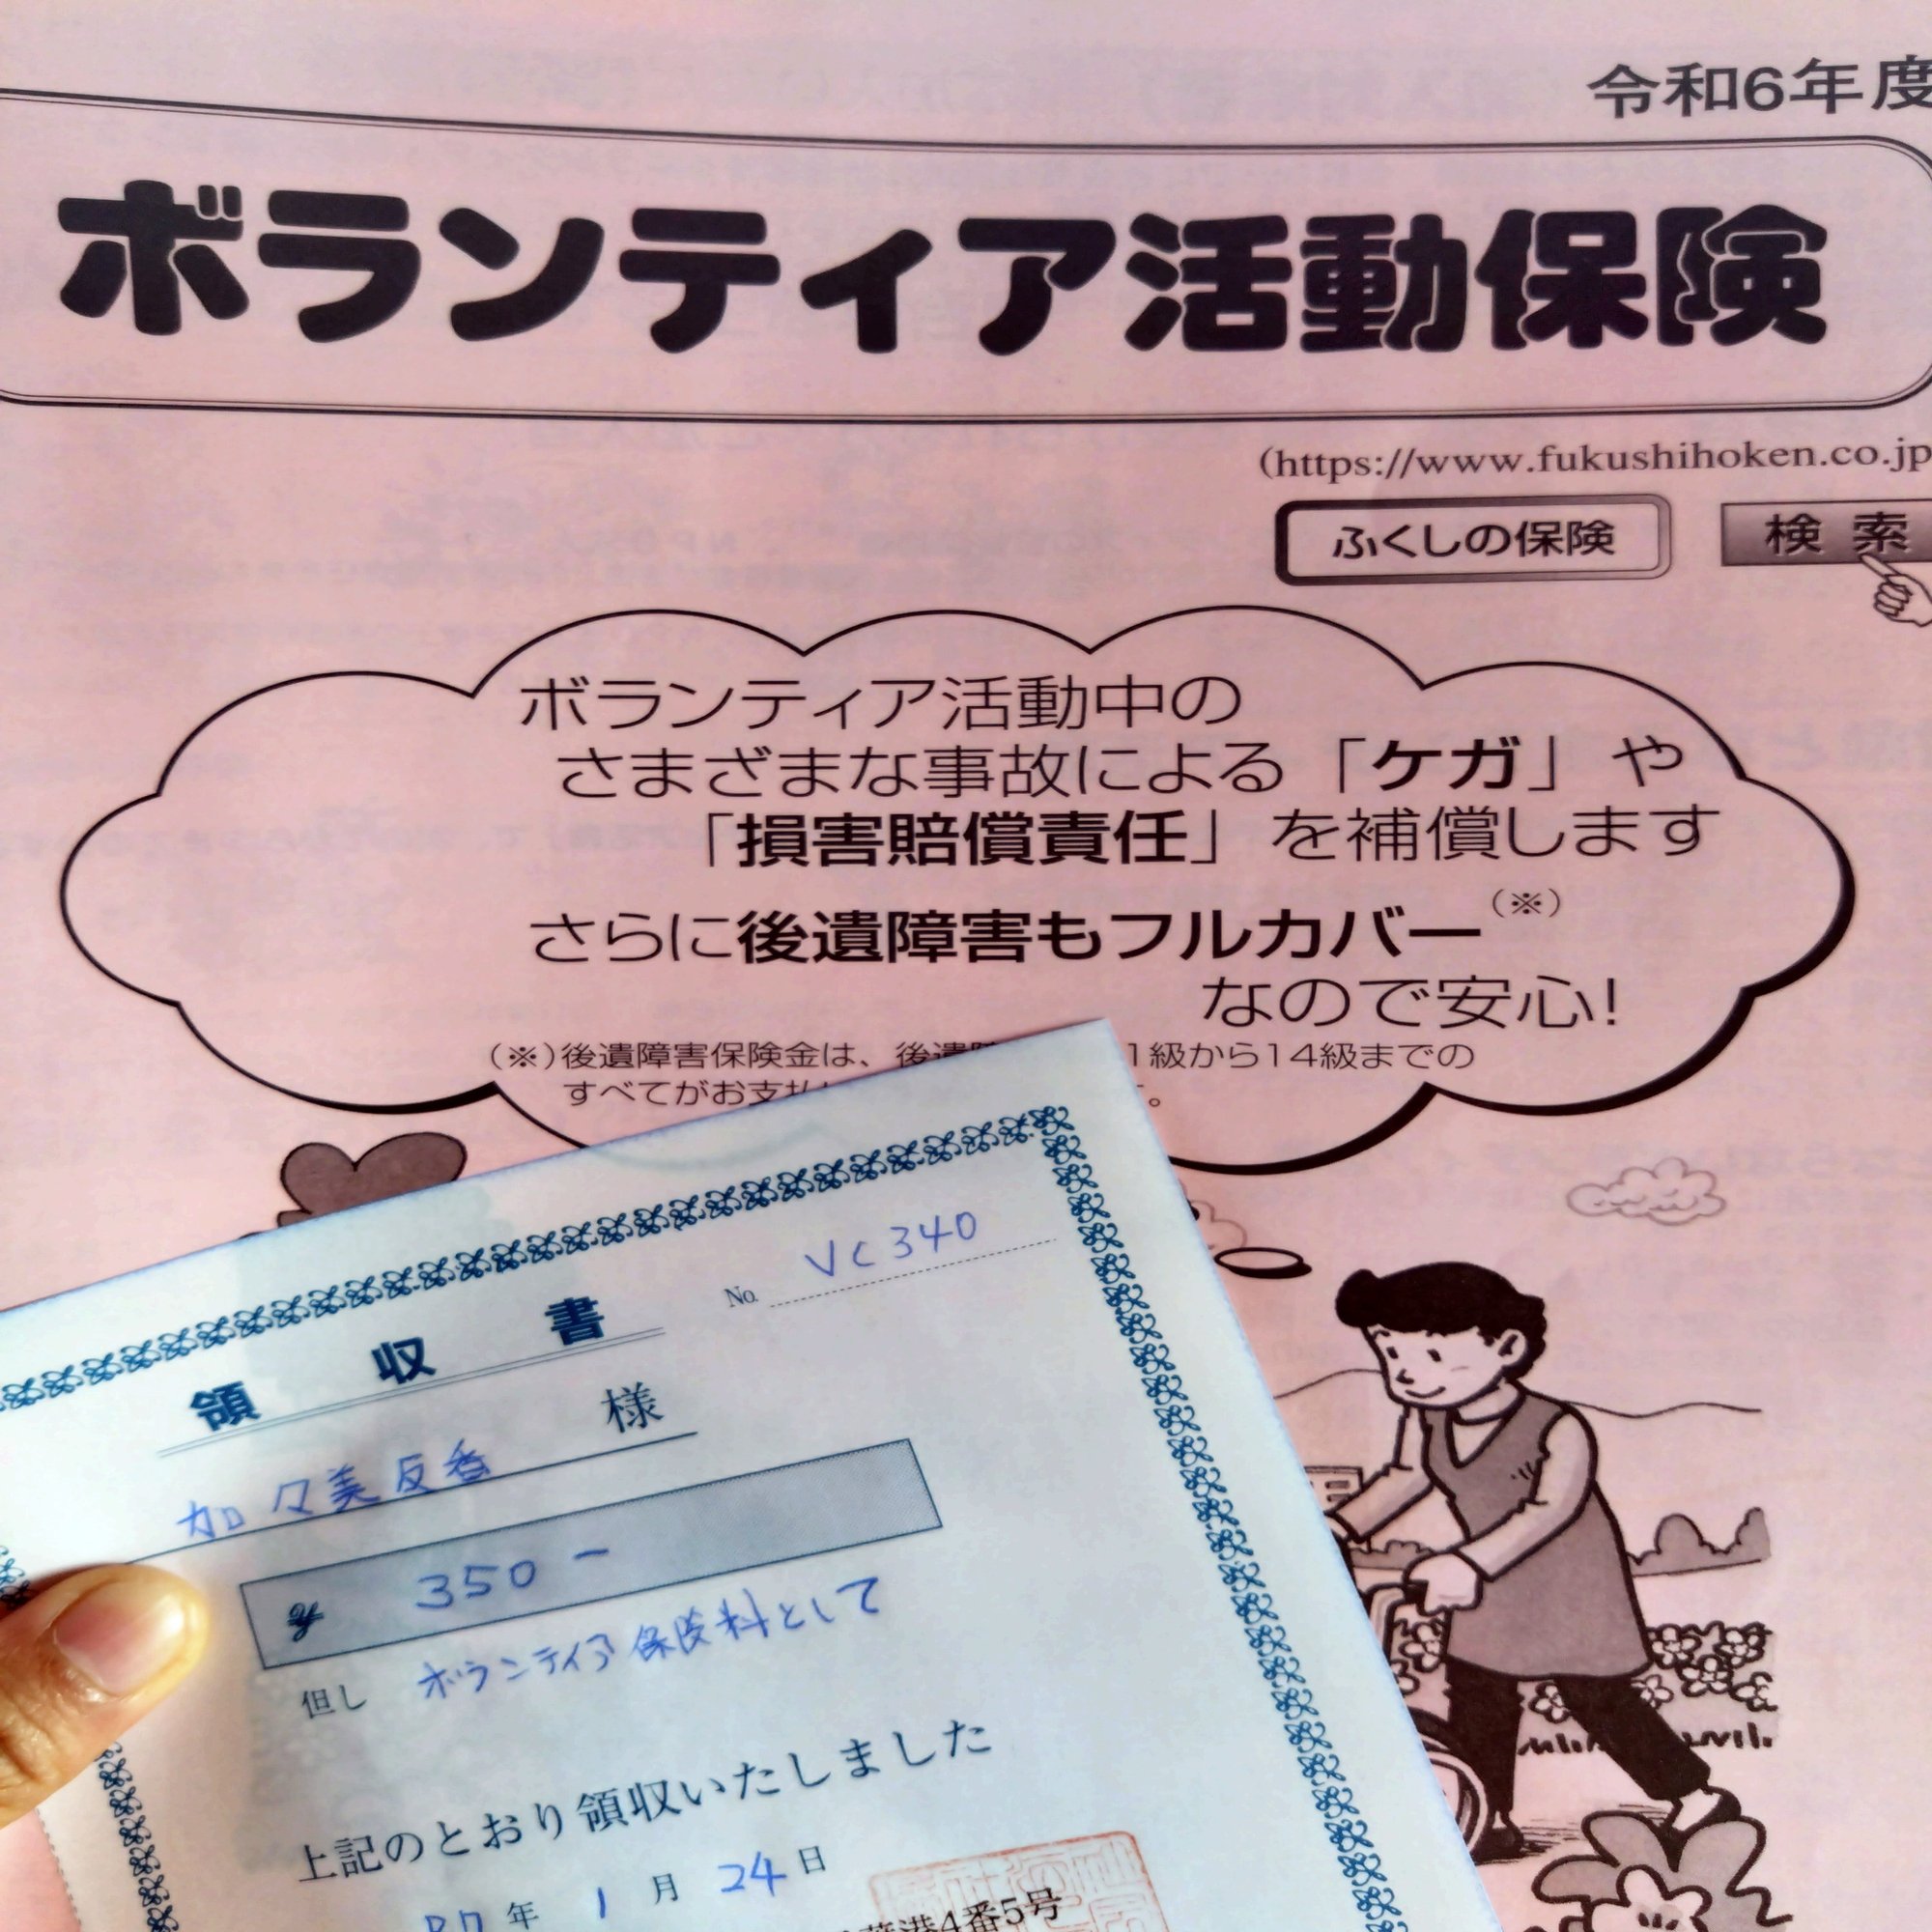 令和6年度
ボランティア活動保険
(https://www.fukushihoken.co.jp
ふくしの保険
検索
ボランティア活動中の
さまざまな事故による「ケガ」や
「損害賠償責任」を補償します
さらに後遺障害もフルカバー(※)
なので安心!
(※)後遺障害保険金は、後遺 1級から14級までの
すべてがお支払 。
No. VC340
領収書
加々美友香 様
¥ 350-
但し ボランティア保険料として
上記のとおり領収いたしました
R7年1月24日
港4番5号